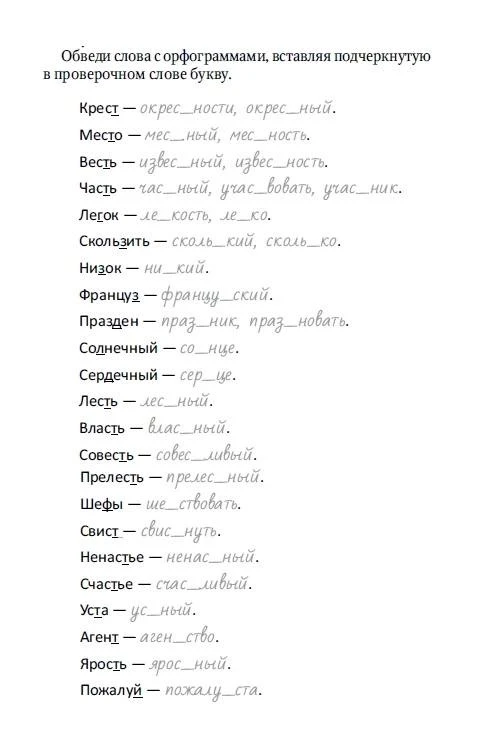 Обведи слова с орфограммами, вставляя подчеркнутую
в проверочном слове букву.
Крест — окрес_ности, окрес_ный.
Место — мес_ный, мес_ность.
Весть — извес_ный, извес_ность.
Часть — час_ный, учас_вовать, учас_ник.
Легок — ле_кость, ле_ко.
Скользить — сколь_кий, сколь_ко.
Низок — ни_кий.
Француз — францу_ский.
Празден — праз_ник, праз_новать.
Солнечный — со_нце.
Сердечный — сер_це.
Лесть — лес_ный.
Власть — влас_ный.
Совесть — совес_ливый.
Прелесть — прелес_ный.
Шефы — ше_ствовать.
Свист — свис_нуть.
Ненастье — ненас_ный.
Счастье — счас_ливый.
Уста — ус_ный.
Агент — аген_ство.
Ярость — ярос_ный.
Пожалуй — пожалу_ста.